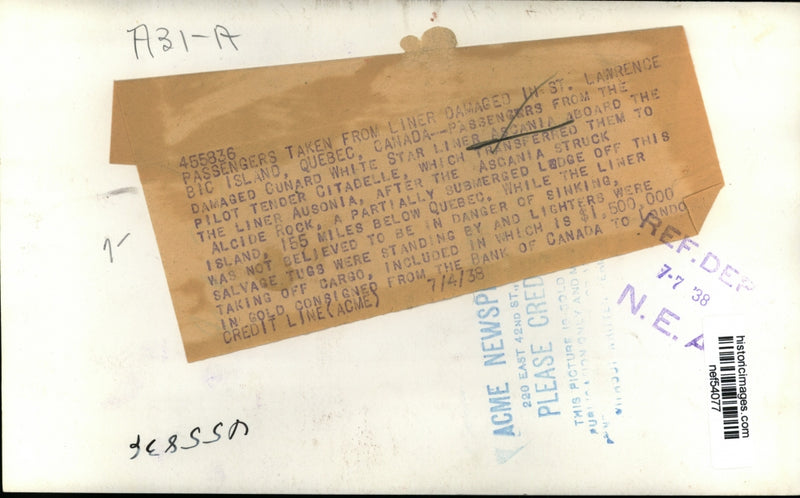 A31-A
455836
PASSENGERS TAKEN FROM LINER DAMAGED IN ST. LAWRENCE
BIC ISLAND, QUEBEC, CANADA--PASSENGERS FROM THE
DAMAGED CUNARD WHITE STAR LINER ASCANIA ABOARD THE
PILOT TENDER CITADELLE, WHICH TRANSFERRED THEM TO
THE LINER AUSONIA, AFTER THE ASCANIA STRUCK
ALCIDE ROCK, A PARTIALLY SUBMERGED LEDGE OFF THIS
ISLAND, 155 MILES BELOW QUEBEC. WHILE THE LINER
WAS NOT BELIEVED TO BE IN DANGER OF SINKING,
SALVAGE TUGS WERE STANDING BY AND LIGHTERS WERE
TAKING OFF CARGO, INCLUDED IN WHICH IS $1,500,000
IN GOLD CONSIGNED FROM THE BANK OF CANADA TO LONDO
CREDIT LINE(ACME) 7/4/38
REF.DEP
7-7 '38
N.E.A
ACME NEWSP
220 EAST 42ND ST.
PLEASE CRED
THIS PICTURE IS SOLD
historicimages.com
nef54077
455836